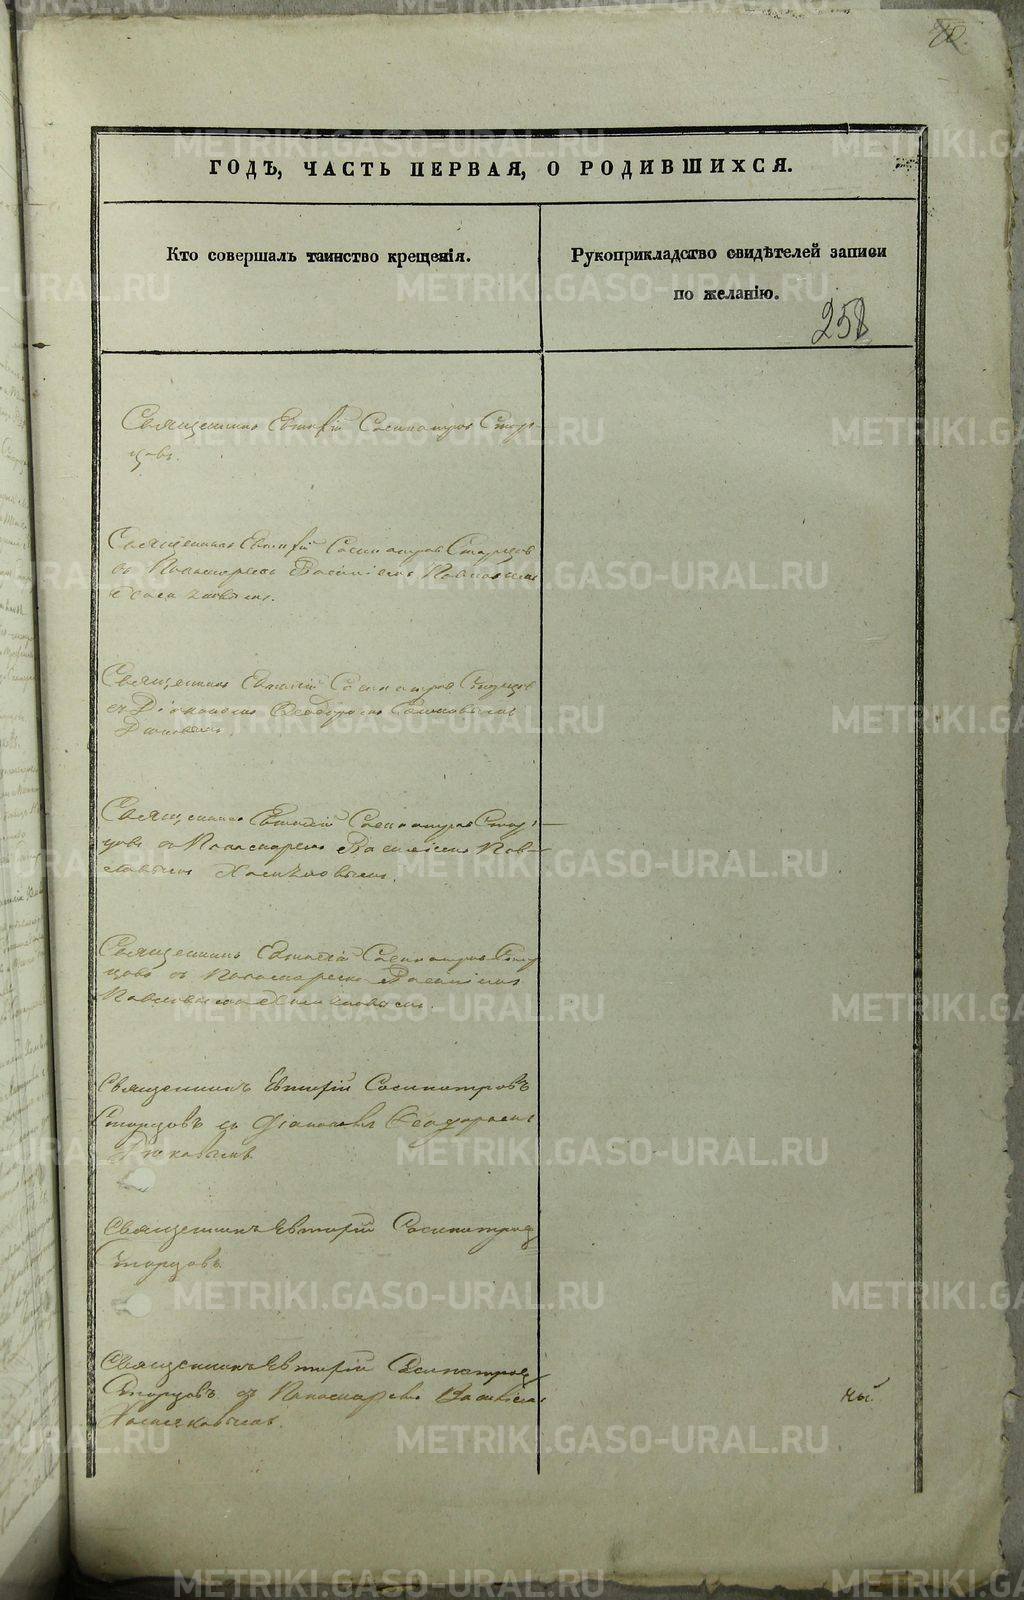 ГОДЪ, ЧАСТЬ ПЕРВАЯ, О РОДИВШИХСЯ.
Кто совершалъ таинство крещенія.
Рукоприкладство свидѣтелей записи
по желанію.
258
Священникъ Евтихій Сосипатровъ Стар-
цовъ.
Священникъ Евтихій Сосипатровъ Старцовъ
съ Пономаремъ Василіемъ Павловымъ
Священникъ Евтихій Сосипатровъ Старцовъ
съ Діакономъ Ѳеодоромъ
Священникъ Евтихій Сосипатровъ Стар-
цовъ съ Пономаремъ Василіемъ Пав-
ловымъ
Священникъ Евтихій Сосипатровъ Стар
цовъ съ Пономаремъ Василіемъ
Павловымъ
Священникъ Евтихій Сосипатровъ
Старцовъ съ Діакономъ Ѳеодоромъ
Священникъ Евтихій Сосипатровъ
Старцовъ
Священникъ Евтихій Сосипатровъ
Старцовъ съ Пономаремъ Василіемъ
METRIKI.GASO-URAL.RU